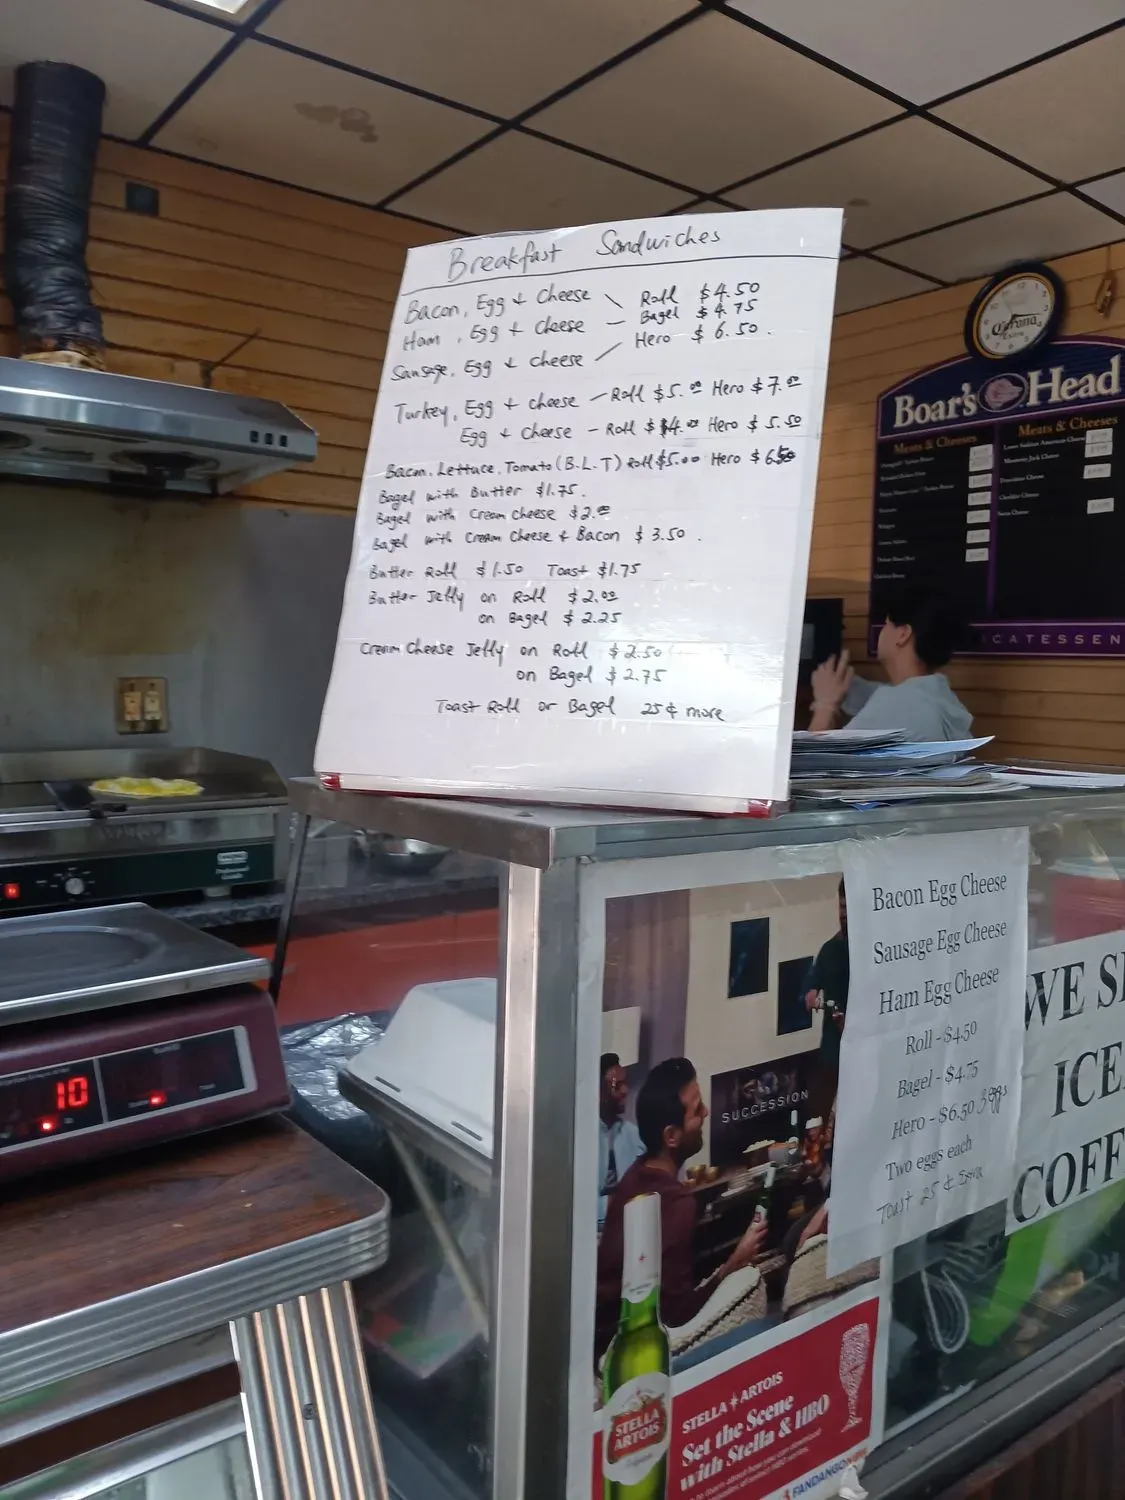 Breakfast Sandwiches
Bacon, Egg + Cheese \ Roll $4.50
Bagel $4.75
Ham, Egg + Cheese — Hero $6.50.
Sausage, Egg + Cheese /
Turkey, Egg + Cheese — Roll $5.00 Hero $7.00
Egg + Cheese — Roll $4.00 Hero $5.50
Bacon, Lettuce, Tomato (B.L.T) Roll $5.00 Hero $6.50
Bagel with Butter $1.75.
Bagel with Cream Cheese $2.00
Bagel with Cream Cheese + Bacon $3.50.
Butter Roll $1.50 Toast $1.75
Butter Jelly on Roll $2.00
on Bagel $2.25
Cream Cheese Jelly on Roll $2.50
on Bagel $2.75
Toast Roll or Bagel 25¢ more
Corona
Extra
Boar's Head
Meats & Cheeses
Meats & Cheeses
ICATESSEN
10
Bacon Egg Cheese
Sausage Egg Cheese
Ham Egg Cheese
Roll - $4.50
Bagel - $4.75
Hero - $6.50 3 eggs
Two eggs each
Toast 25 ¢ Extra
WE S
ICE
COFF
SUCCESSION
STELLA ARTOIS
STELLA ARTOIS
Set the Scene
with Stella & HBO
FANDANGO